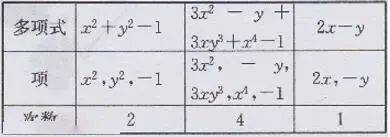 多项式 x²+y²−1 3x² − y + 3xy³+x⁴−1 2x−y
项 x², y², −1 3x², − y, 3xy³, x⁴, −1 2x, −y
次数 2 4 1